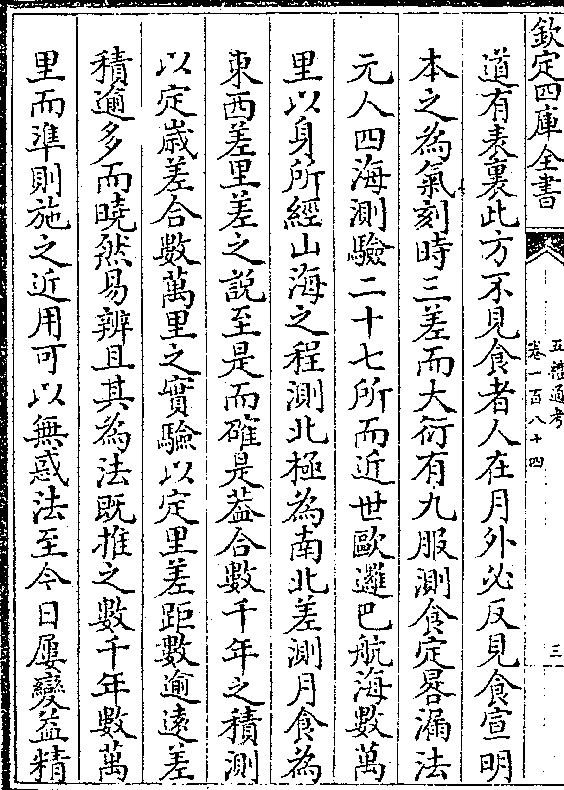 欽定四庫全書
五禮通考
卷一百八十四
三
道有表裏此方不見食者人在月外必反見食宣明
本之為氣刻時三差而大衍有九服測食定晷漏法
元人四海測驗二十七所而近世歐邏巴航海數萬
里以身所經山海之程測北極為南北差測月食為
東西差里差之說至是而確是葢合數千年之積測
以定歲差合數萬里之實驗以定里差距數逾遠差
積逾多而曉然易辨且其為法既推之數千年數萬
里而準則施之近用可以無惑法至今日屢變益精